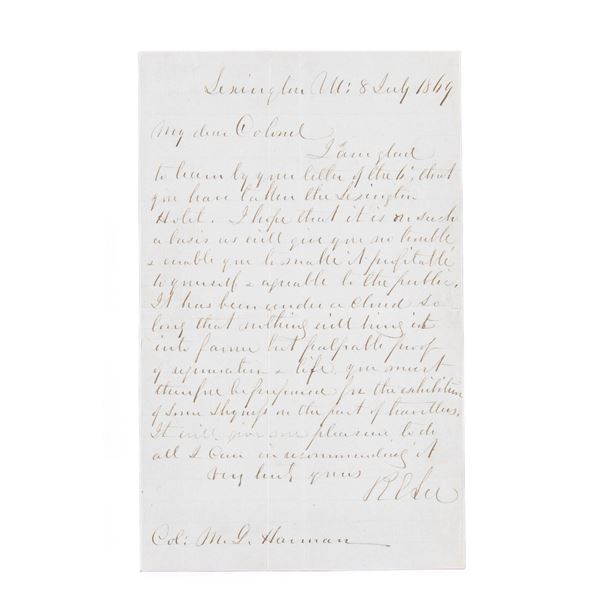 Lexington Va: 8 July 1869
My dear Colonel
I am glad
to learn by your letter of the 6', that
you have taken the Lexington
Hotel. I hope that it is on such
a basis as will give you no trouble,
& enable you to make it profitable
to yourself & agreable to the public.
It has been under a cloud so
long that nothing will bring it
into favour but palpable proof
of & life, you must
therefore be prepared for the exhibition
of some shyness on the part of travellers.
It will give me pleasure, to do
all I can in recommending it
Very truly yours
R E Lee
Col: M. G. Harman